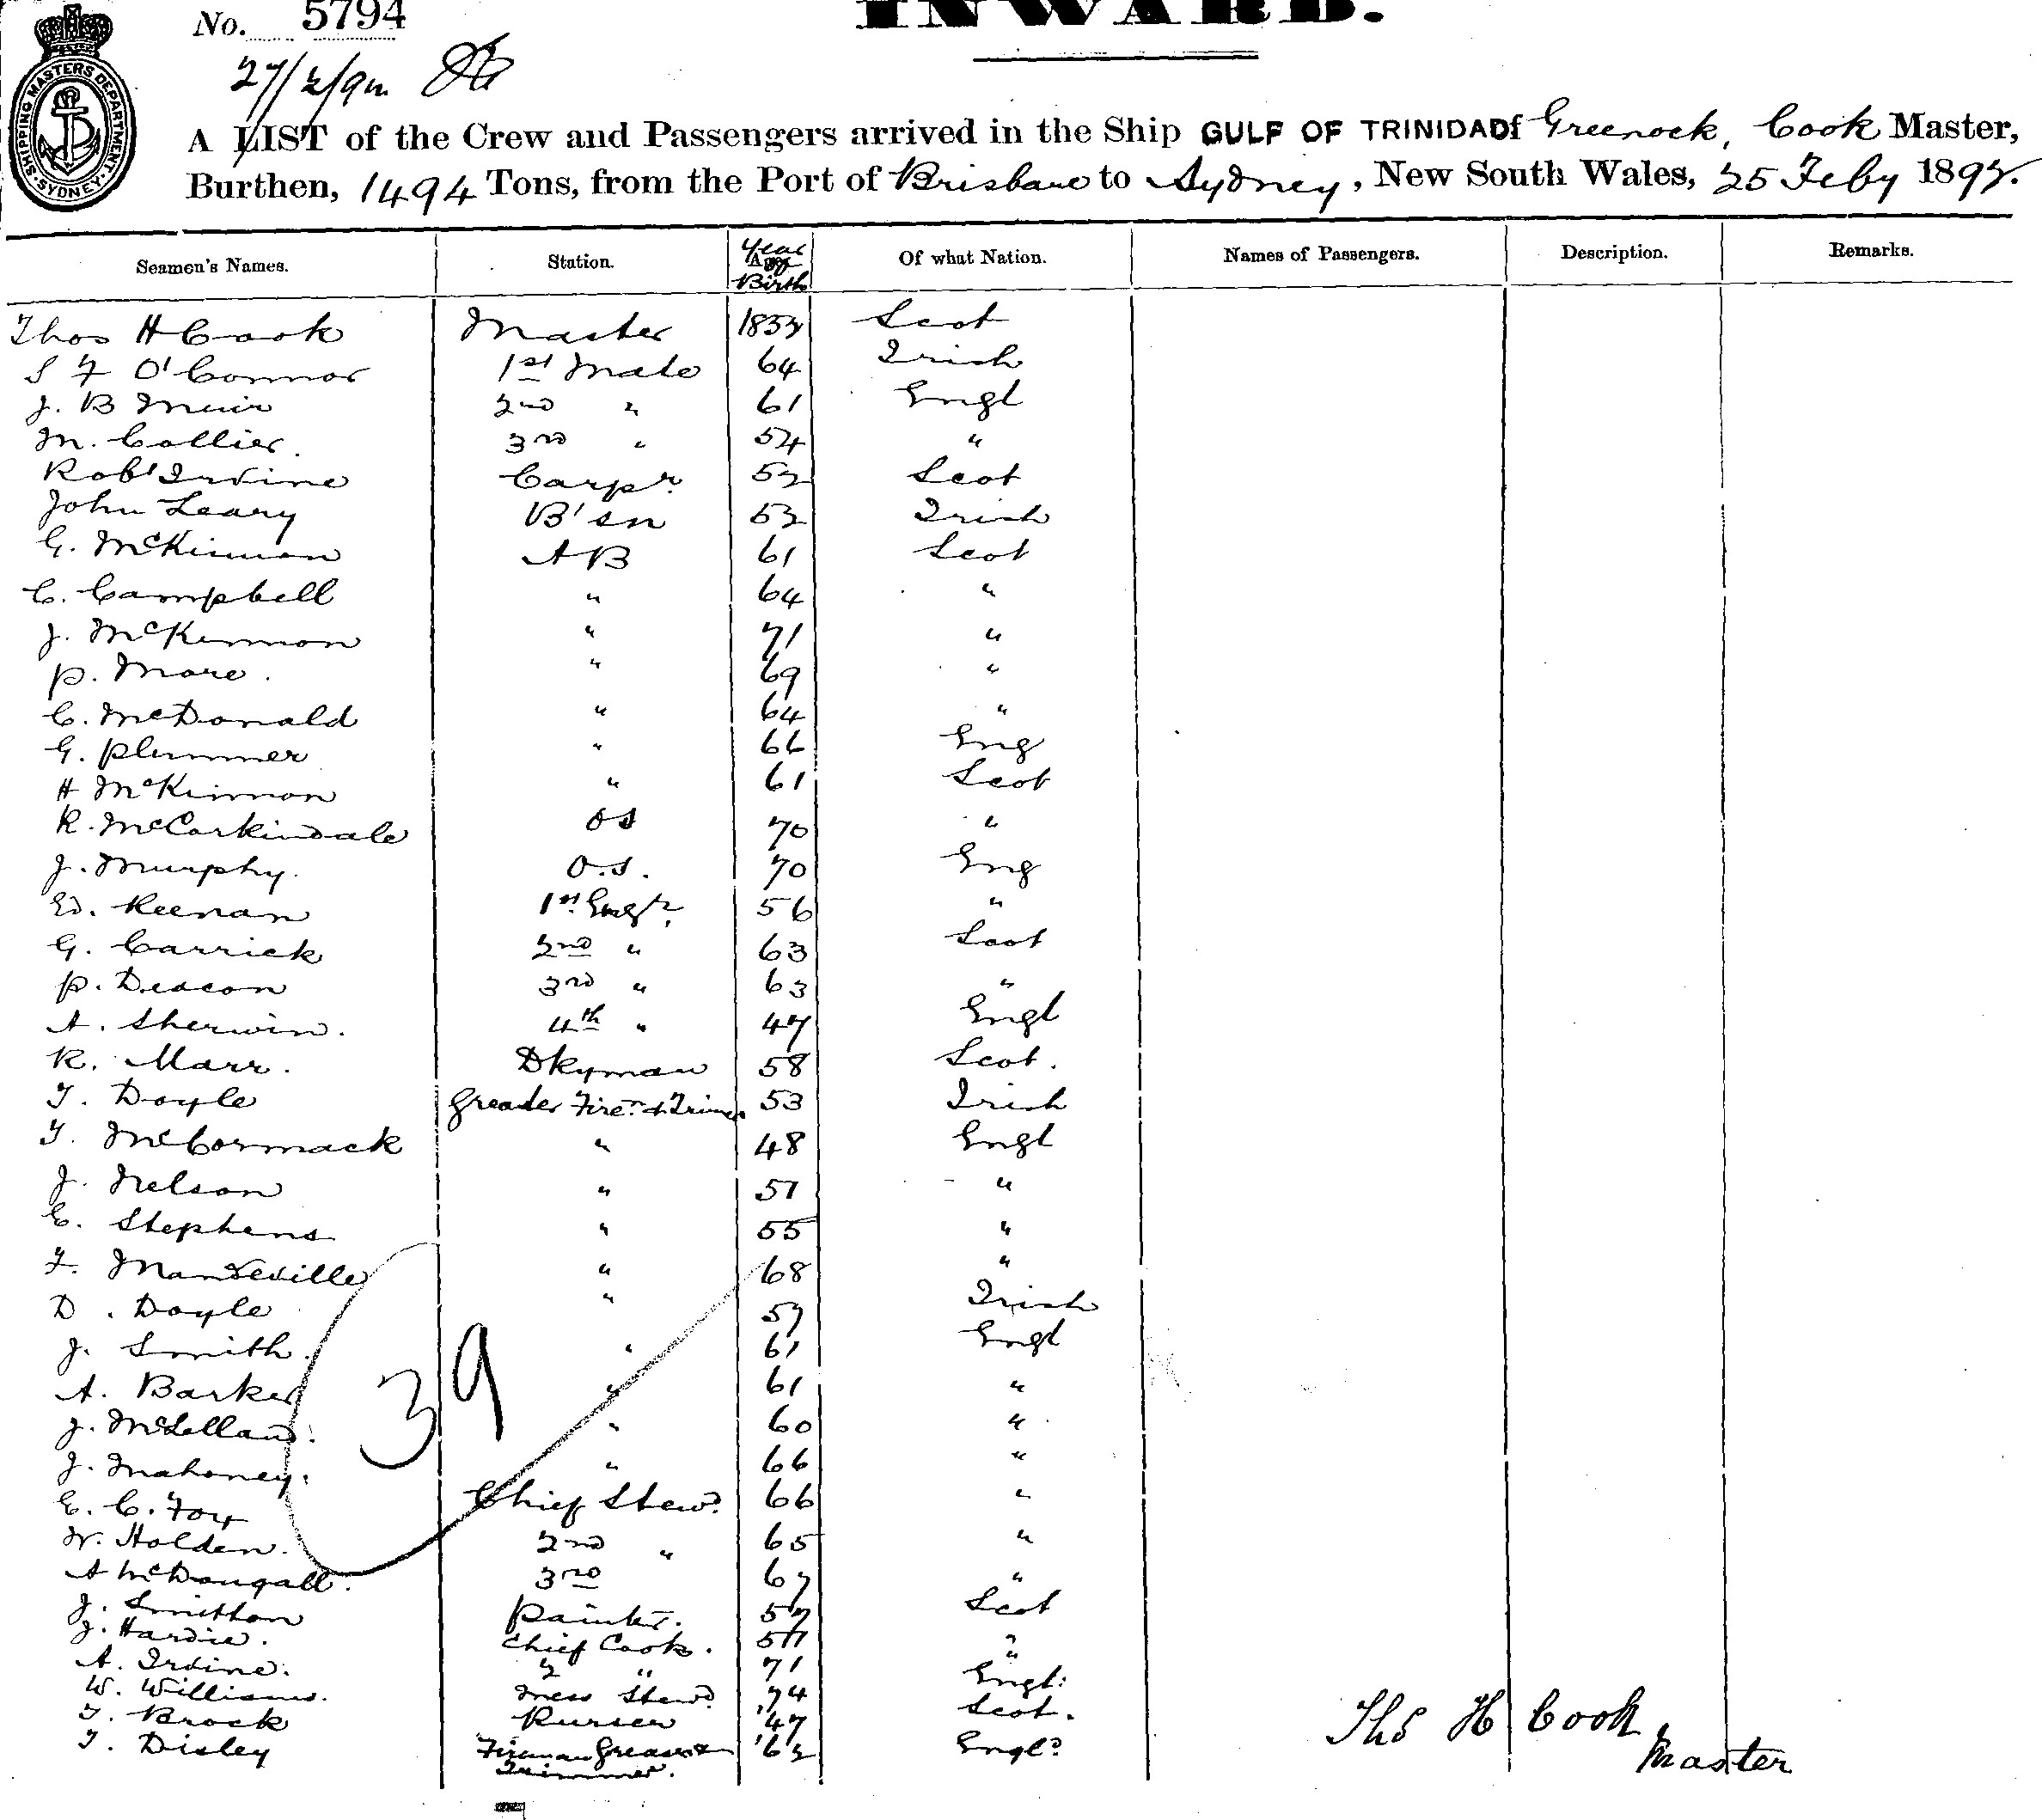 No. 5794
INWARD.
SHIPPING MASTERS DEPARTMENT SYDNEY
27/2/92
A LIST of the Crew and Passengers arrived in the Ship GULF OF TRINIDAD of Greenock, Cook Master,
Burthen, 1494 Tons, from the Port of Brisbane to Sydney, New South Wales, 25 Feby 1892.
Seamen's Names. Station. Year of Birth Of what Nation. Names of Passengers. Description. Remarks.
Thos H Cook Master 1852 Scot
S F O'Connor 1st Mate 64 Irish
J. B Muir 2nd " 61 Engl
M. Collier. 3rd " 54 "
Robt Irvine Carpr. 52 Scot
John Leary B'sn 52 Irish
G. McKinnon A B 61 Scot
C. Campbell " 64 "
J. McKinnon " 71 "
P. More. " 69 "
C. McDonald " 64 "
G. Plummer " 66 Eng
H McKinnon " 61 Scot
R. McCorkindale OS 70 "
J. Murphy. O.S. 70 Eng
Ed. Keenan 1st Engr. 56 "
G. Carrick 2nd " 63 Scot
P. Deacon 3rd " 63 "
A. Sherwin. 4th " 47 Engl
R. Marr. Dkyman 58 Scot.
T. Doyle Greaser Firen. & Trimer 53 Irish
T. McCormack " 48 Engl
J. Nelson " 57 "
C. Stephens " 55 "
F. Mandeville " 68 "
D. Doyle " 57 Irish
J. Smith. " 61 Engl
39
A. Barker " 61 "
J. McLelland. " 60 "
J. Mahoney. " 66 "
E. C. Fox Chief Stewd. 66 "
W. Holden. 2nd " 65 "
A McDougall. 3rd 67 "
J. Smithon Painter. 57 Scot
J. Hardie. Chief Cook. 57 "
A. Irvine. 2 " 71 "
W. Williams. Mess Stewd 74 Engl.
T. Brock Purser '47 Scot.
T. Disley Fireman Greaser & Trimmer. '62 Engld
Thos H Cook
Master